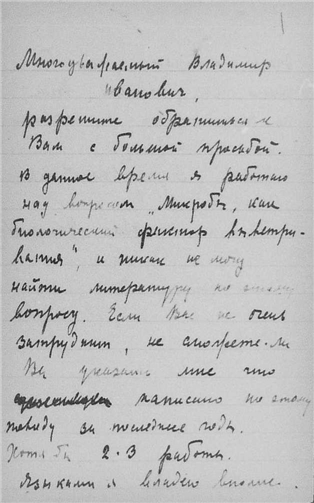 1
Многоуважаемый Владимир
Иванович,
разрешите обратиться к
Вам с большой просьбой.
В данное время я работаю
над вопросом „Микробы, как
биологический фактор выветри-
вания", и никак не могу
найти литературу по этому
вопросу. Если Вас не очень
затруднит, не сможете-ли
Вы указать мне что
написано по этому
поводу за последние годы.
Хотя бы 2-3 работы.
Языками я владею вполне.